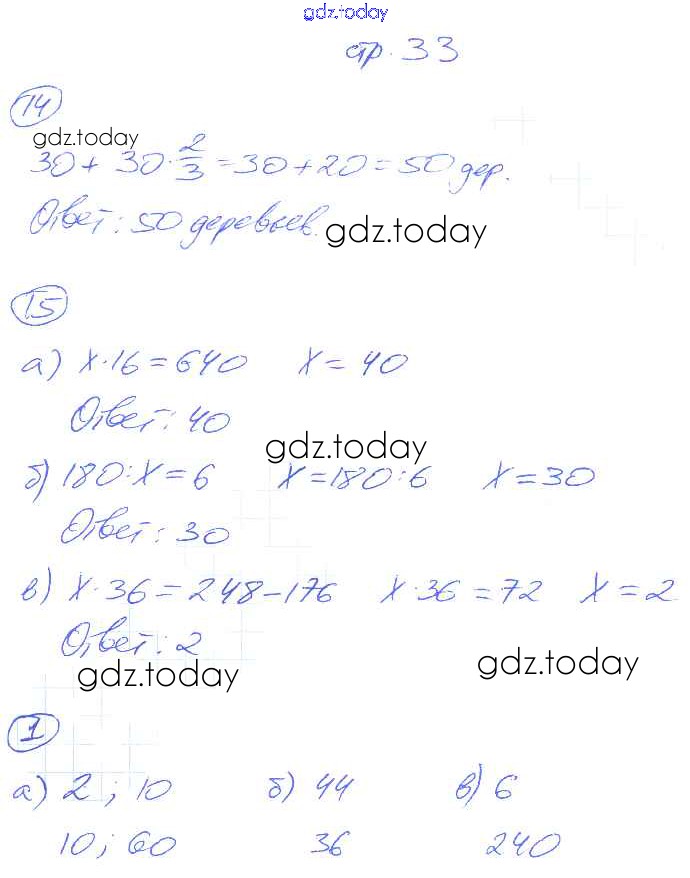 gdz.today
стр. 33
14
gdz.today
30 + 30 · 2/3 = 30 + 20 = 50 дер.
Ответ: 50 деревьев.
gdz.today
15
а) x · 16 = 640 x = 40
Ответ: 40
gdz.today
б) 180 : x = 6 x = 180 : 6 x = 30
Ответ: 30
в) x · 36 = 248 - 176 x · 36 = 72 x = 2
Ответ: 2
gdz.today
gdz.today
1
а) 2 ; 10 б) 44 в) 6
10 ; 60 36 240